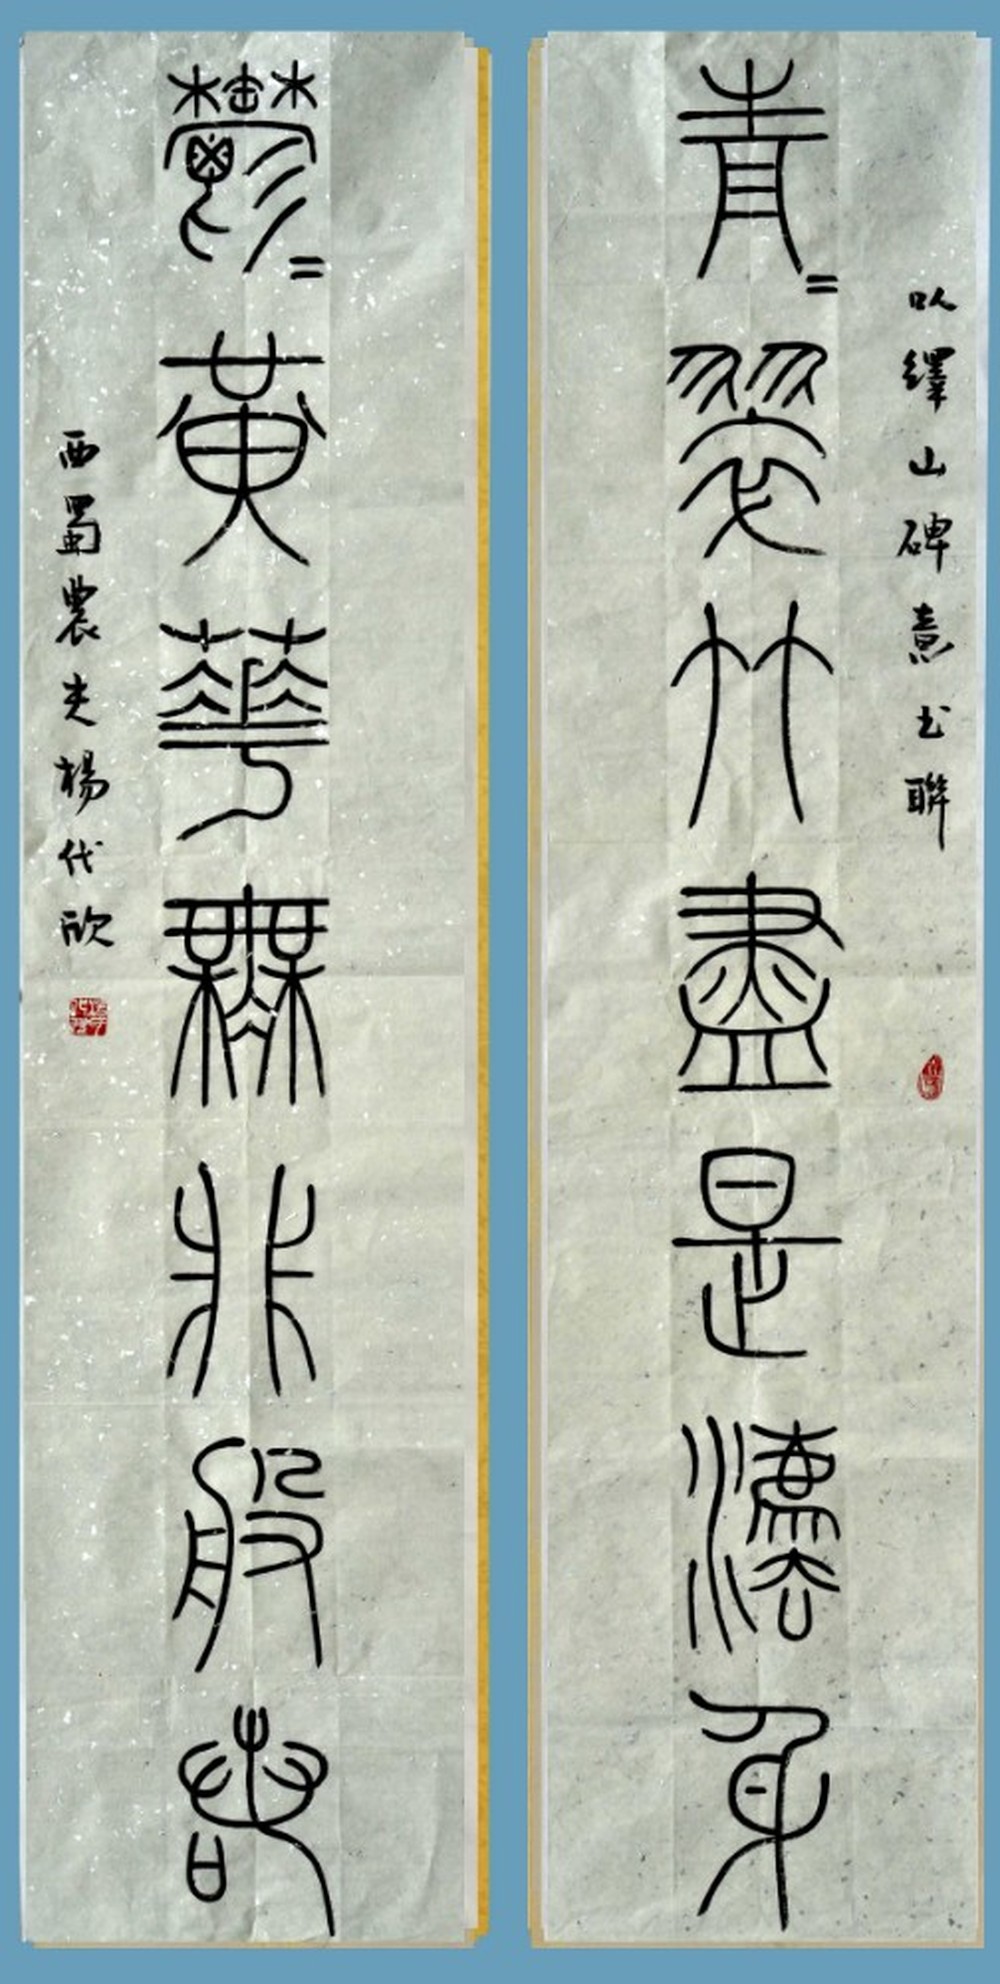 以繹山碑意书聯
青=翠竹盡是灋身
鬱=黃華無非般若
西蜀農夫楊代欣